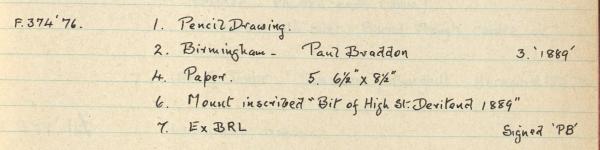 F.374'76. 1. Pencil Drawing.
2. Birmingham - Paul Braddon 3. '1889'
4. Paper. 5. 6½" x 8½"
6. Mount inscribed "Bit of High St. Deritend 1889"
7. Ex BRL Signed 'PB'